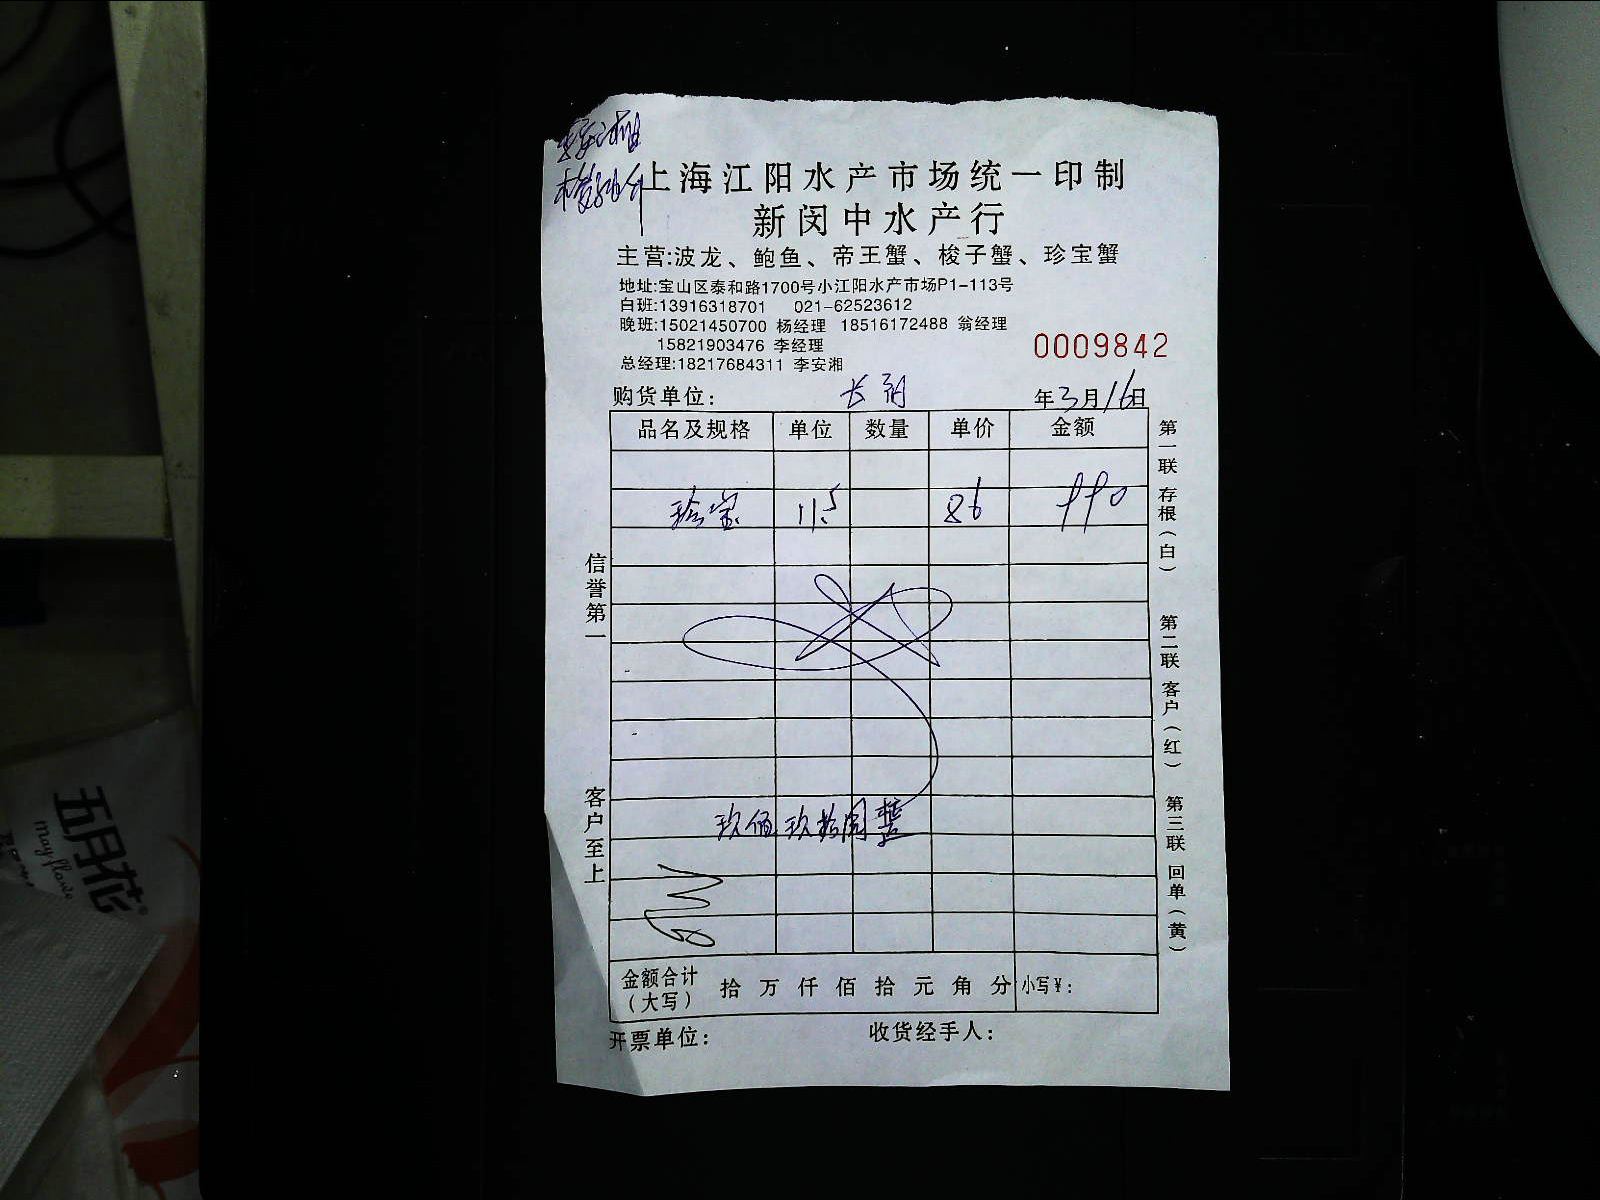 上海江阳水产市场统一印制
新闵中水产行
主营:波龙、鲍鱼、帝王蟹、梭子蟹、珍宝蟹
地址:宝山区泰和路1700号小江阳水产市场P1-113号
白班:13916318701 021-62523612
晚班:15021450700 杨经理 18516172488 翁经理
15821903476 李经理
0009842
总经理:18217684311 李安湘
购货单位: 年3月16日
品名及规格 单位 数量 单价 金额
珍宝 11.5 86 990
玖佰玖拾圆整
金额合计(大写) 拾 万 仟 佰 拾 元 角 分 小写¥:
开票单位: 收货经手人:
信誉第一
客户至上
第一联 存根(白)
第二联 客户(红)
第三联 回单(黄)
五月花
may flower